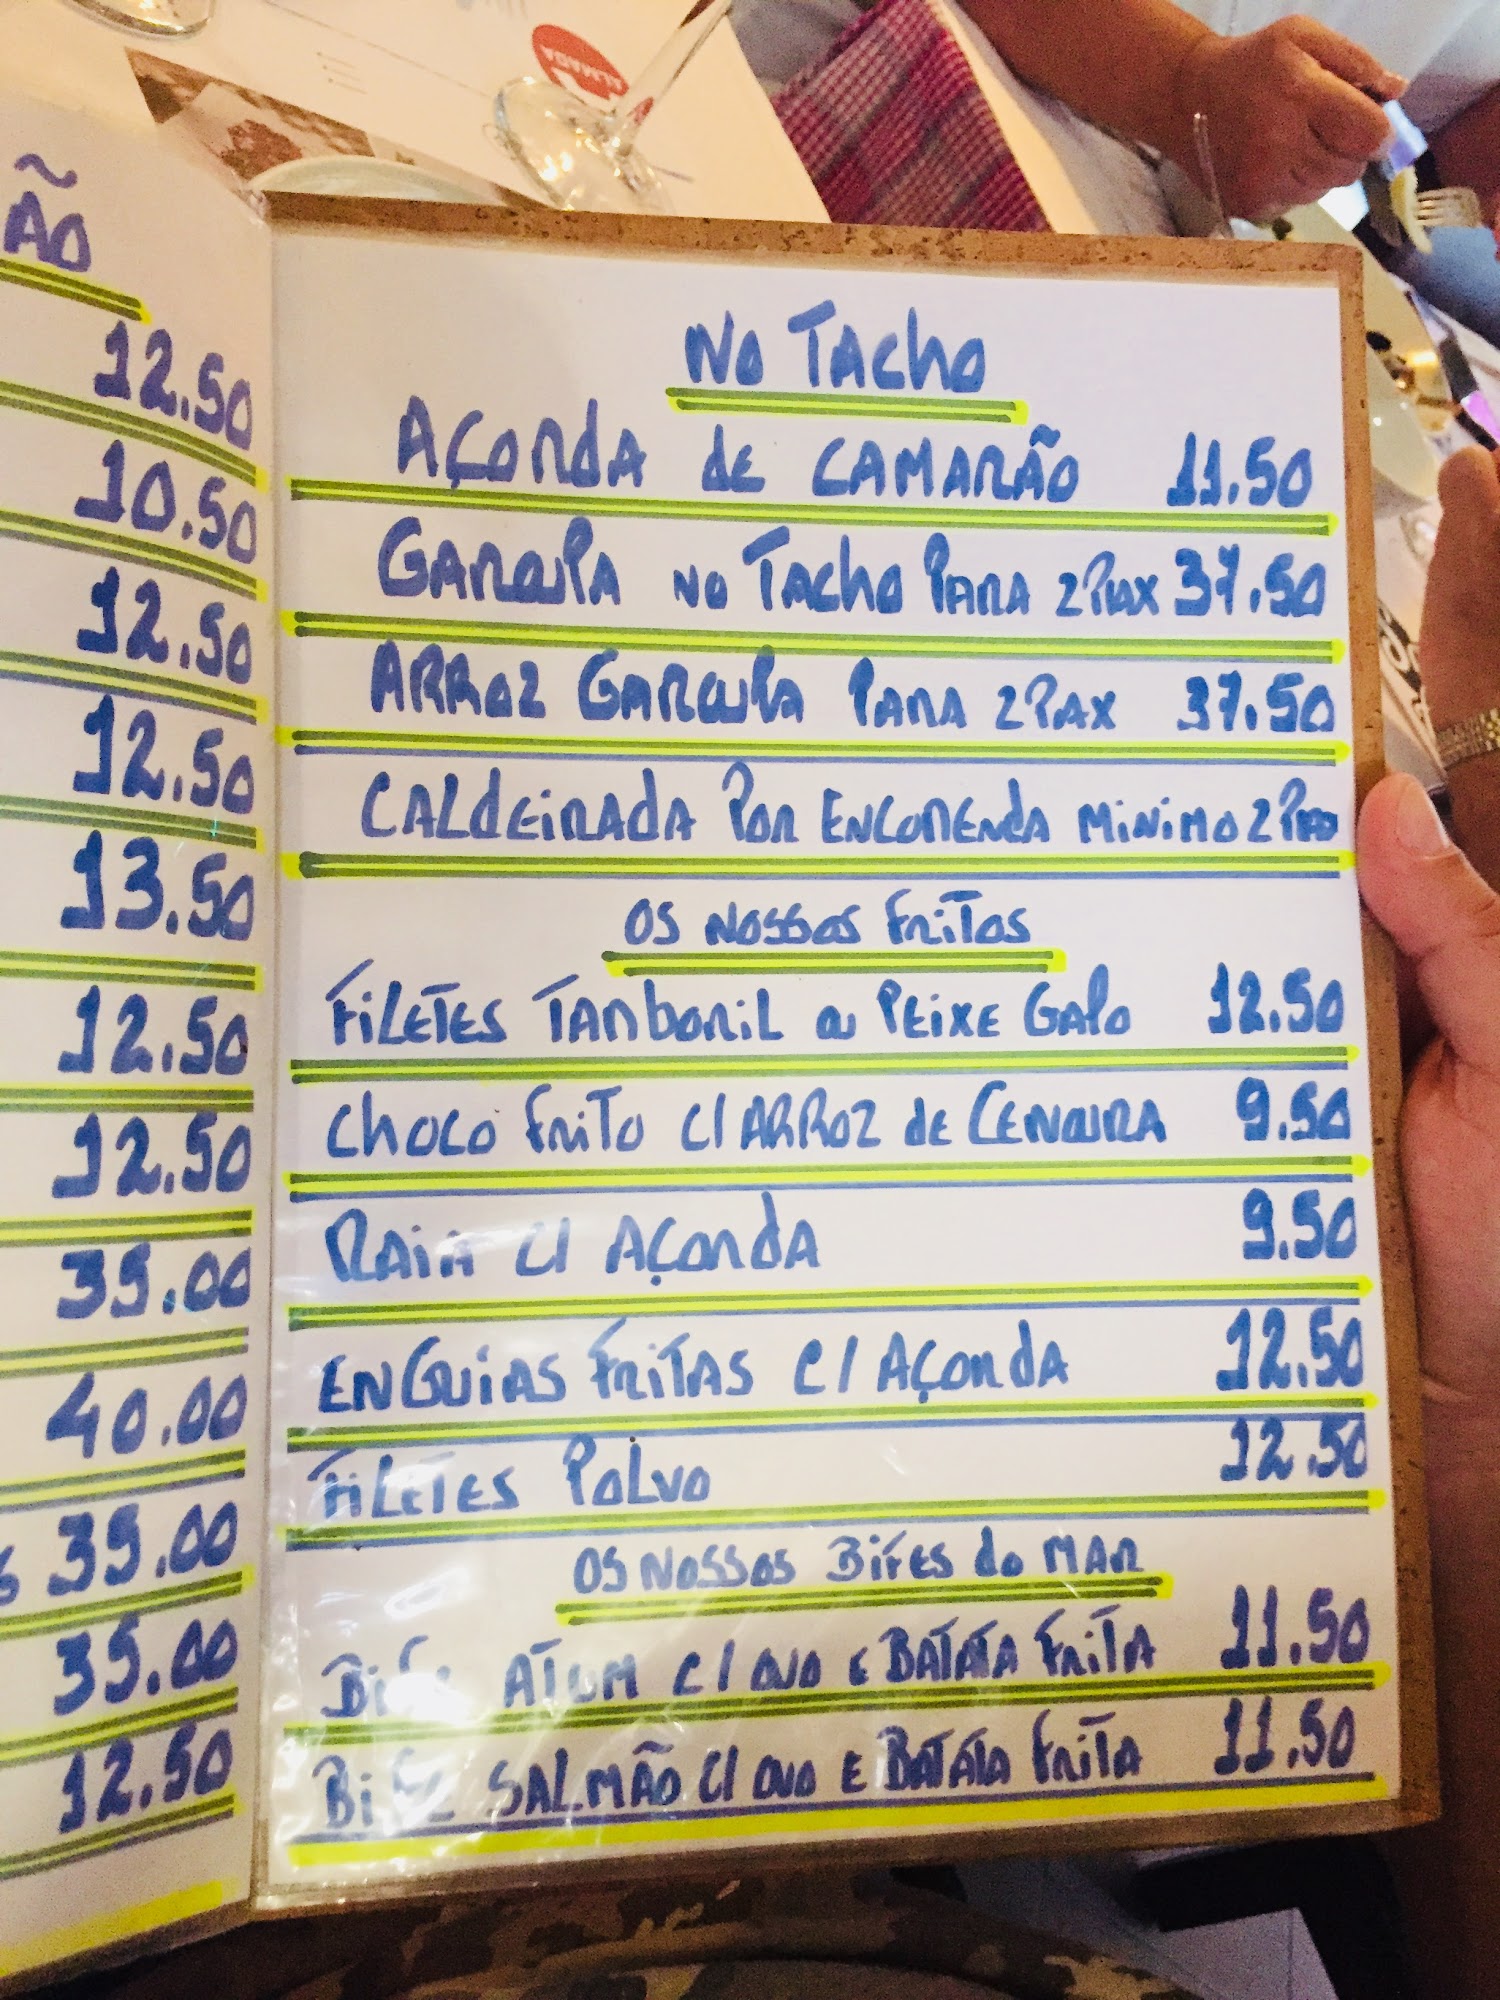 ALMADA
ÃO
12.50
10.50
12.50
12.50
13.50
12.50
12.50
39.00
40.00
39.00
35.00
12.50
NO TACHO
AÇORDA DE CAMARÃO 11.50
GAROUPA NO TACHO PARA 2 PAX 37.50
ARROZ GAROUPA PARA 2 PAX 37.50
CALDEIRADA POR ENCOMENDA MINIMO 2 PAX
OS NOSSOS FRITOS
FILETES TAMBORIL OU PEIXE GALO 12.50
CHOCO FRITO C/ ARROZ DE CENOURA 9.50
RAIA C/ AÇORDA 9.50
ENGUIAS FRITAS C/ AÇORDA 12.50
FILETES POLVO 12.50
OS NOSSOS BIFES DO MAR
BIFE ATUM C/ OVO E BATATA FRITA 11.50
BIFE SALMÃO C/ OVO E BATATA FRITA 11.50